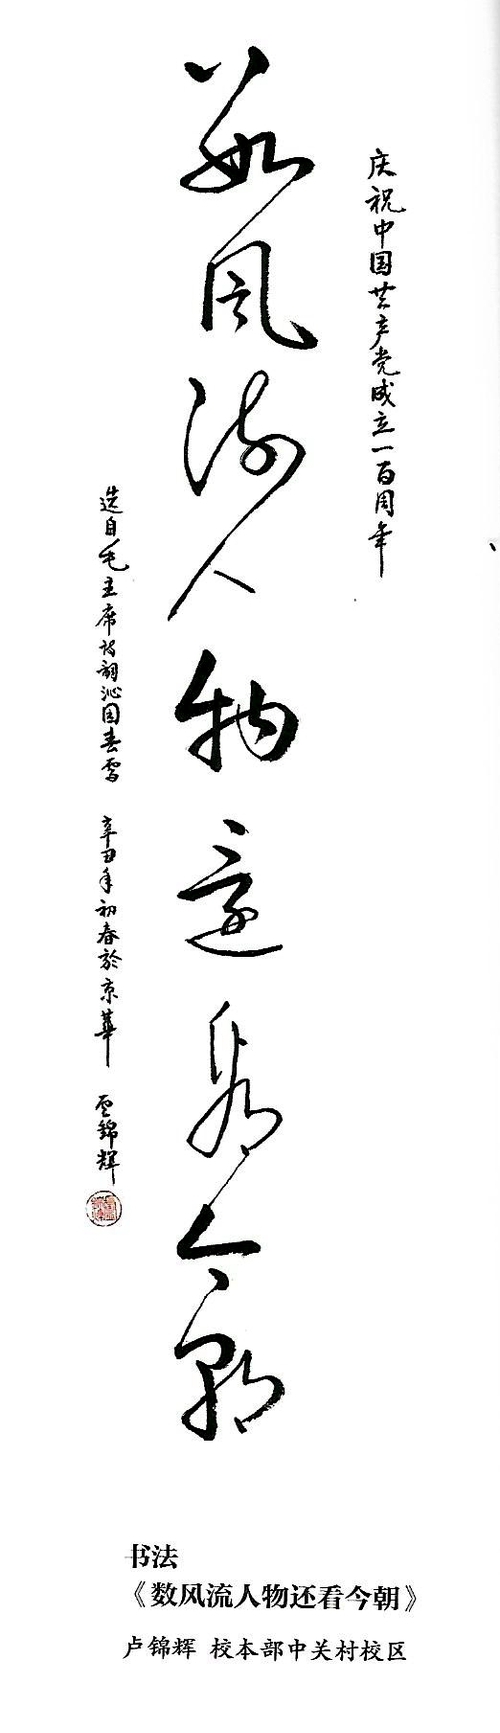 庆祝中国共产党成立一百周年
数风流人物还看今朝
选自毛主席诗词沁园春雪 辛丑年初春於京华 卢锦辉
书法
《数风流人物还看今朝》
卢锦辉 校本部中关村校区